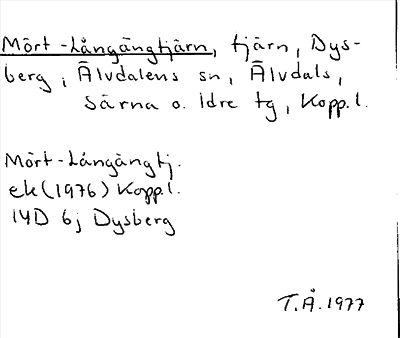 Mört-Långängtjärn, tjärn, Dys-
berg i Älvdalens sn, Älvdals,
Särna o. Idre tg, Kopp.l.
Mört-Långängtj.
ek (1976) Kopp.l.
14D 6j Dysberg
T.Å. 1977